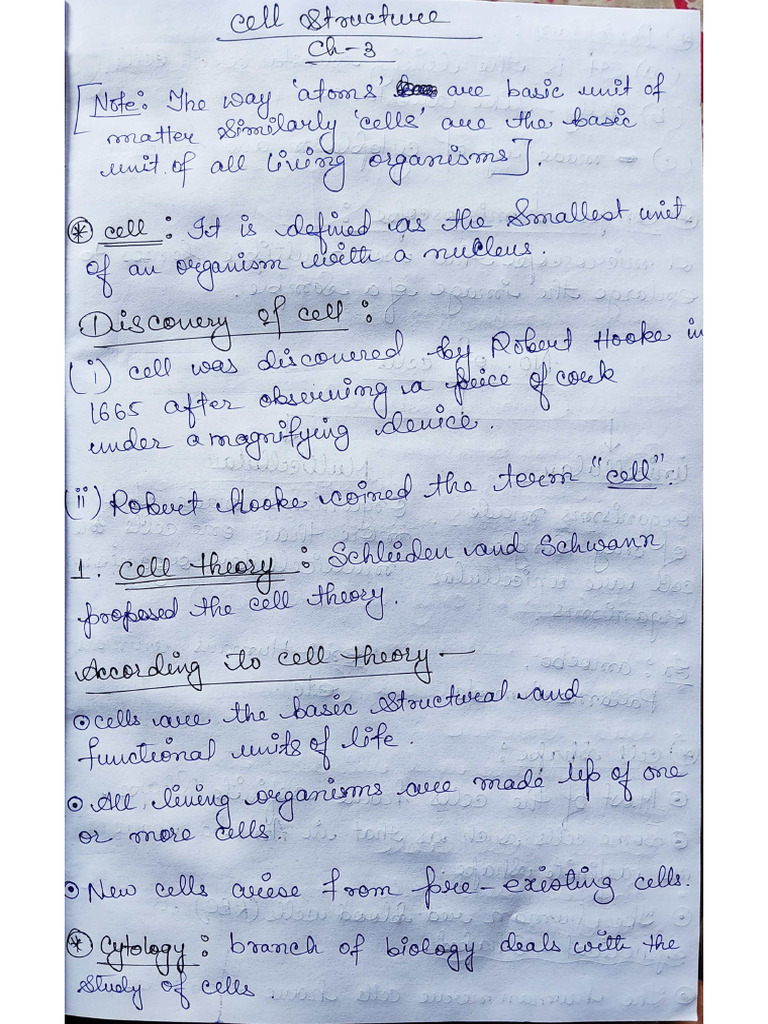 Cell Structure
Ch-3
[Note: The way 'atoms' are basic unit of
matter similarly 'cells' are the basic
unit of all living organisms].
* cell: It is defined as the smallest unit
of an organism with a nucleus.
Discovery of cell:
(i) cell was discovered by Robert Hooke in
1665 after observing a peice of cork
under a magnifying device.
(ii) Robert Hooke coined the term "cell"
1. Cell theory: Schleiden and Schwann
proposed the cell theory.
According to cell theory—
⊙ cells are the basic structural and
functional units of life.
⊙ All living organisms are made up of one
or more cells.
⊙ New cells arise from pre-existing cells.
* Cytology: branch of biology deals with the
study of cells.